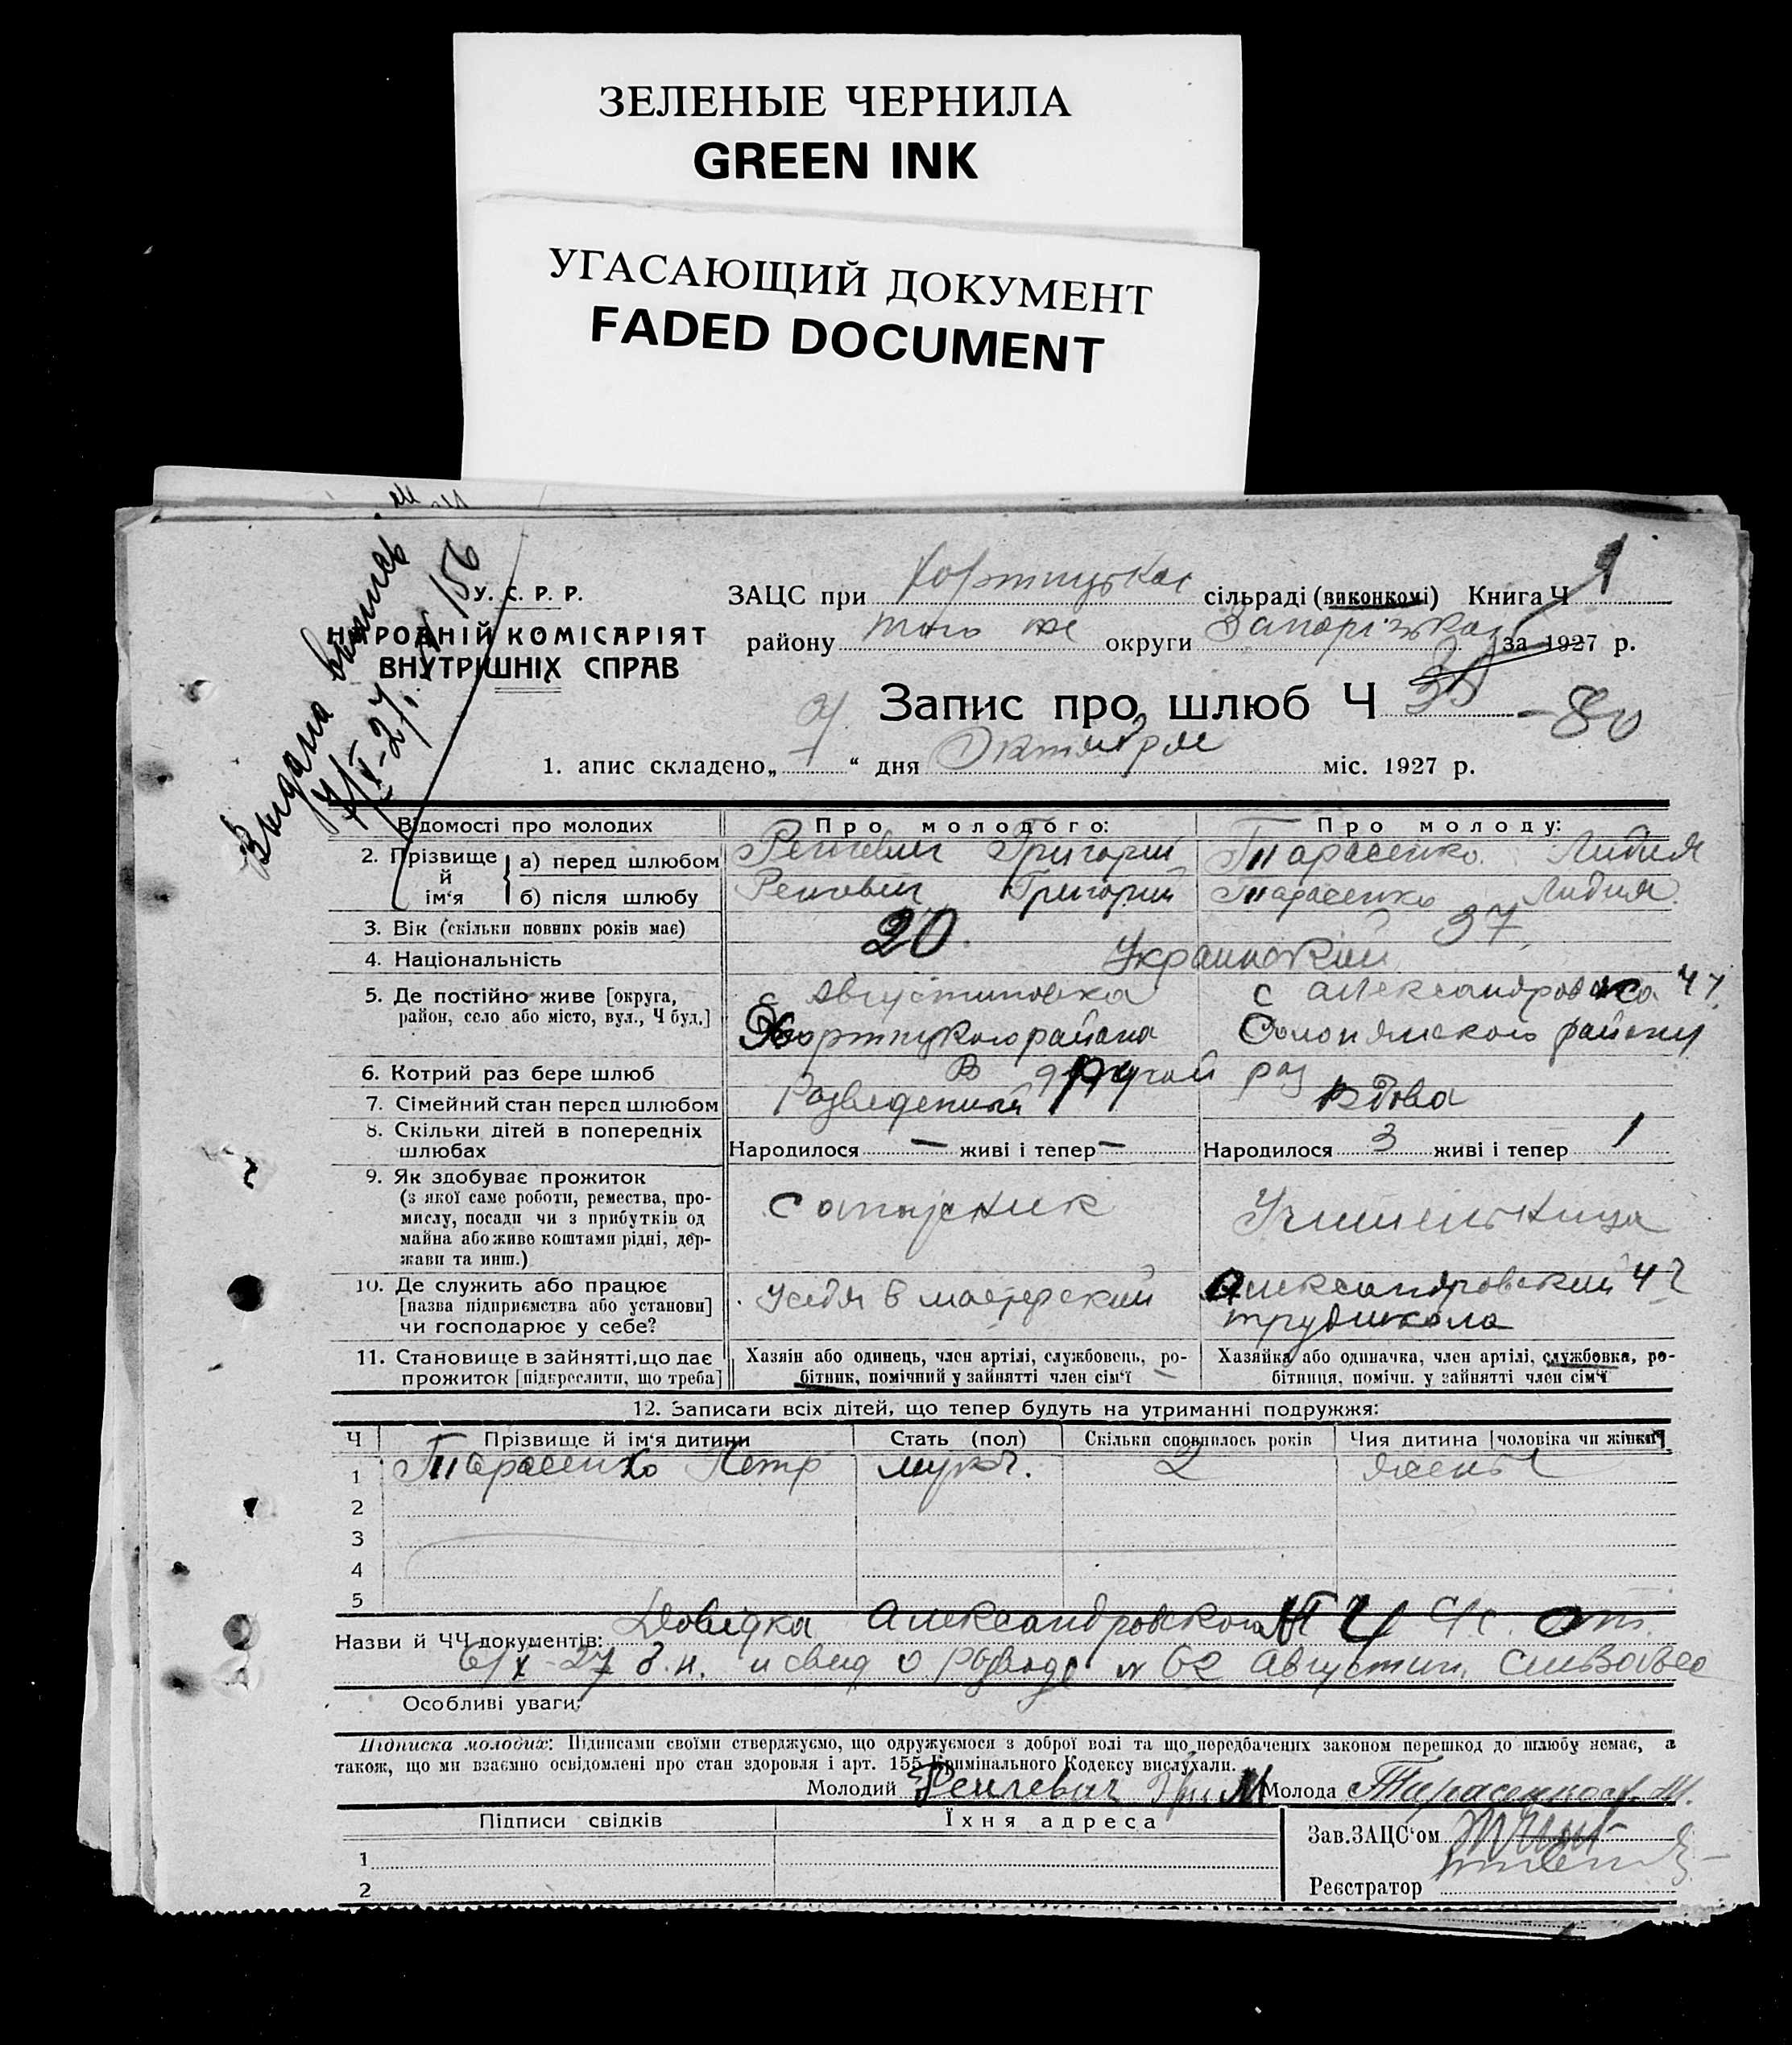 ЗЕЛЕНЫЕ ЧЕРНИЛА
GREEN INK
УГАСАЮЩИЙ ДОКУМЕНТ
FADED DOCUMENT
Выдана выпись
У. С. Р. Р.
НАРОДНІЙ КОМІСАРІЯТ
ВНУТРІШНІХ СПРАВ
ЗАЦС при Хортицькая сільраді (виконкомі) Книга Ч 1
району того же округи Запорізькая за 1927 р.
Запис про шлюб Ч 80
1. апис складено „ “ дня Октября міс. 1927 р.
Відомості про молодих Про молодого: Про молоду:
2. Прізвище й ім‘я а) перед шлюбом Григорий Тарасенко Лидия
б) після шлюбу Григорий Тарасенко Лидия
3. Вік (скільки повних років має) 20 37
4. Національність Украинский
5. Де постійно живе [округа, район, село або місто, вул., Ч буд.] с Августиновка с Александровка Ч
Хортицкого района Солонянского района
6. Котрий раз бере шлюб В другой раз
7. Сімейний стан перед шлюбом Разведенный Вдова
8. Скільки дітей в попередніх шлюбах Народилося — живі і тепер — Народилося 3 живі і тепер 1
9. Як здобуває прожиток
(з якої саме роботи, ремества, промислу, посади чи з прибутків од майна або живе коштами рідні, держави та инш.) сапожник Учительница
10. Де служить або працює
[назва підприємства або установи]
чи господарює у себе? у себя в мастерский Александровский
трудшкола
11. Становище в зайнятті, що дає прожиток [підкреслити, що треба] Хазяін або одинець, член артілі, службовець, робітник, помічний у зайнятті член сім‘ї Хазяйка або одиначка, член артілі, службовка, робітниця, помічн. у зайнятті член сім‘ї
12. Записати всіх дітей, що тепер будуть на утриманні подружжя:
Ч Прізвище й ім‘я дитини Стать (пол) Скільки сповнилось років Чия дитина [чоловіка чи жінки]
1 Тарасенко Петр мужч. 2 жены
2
3
4
5
Назви й ЧЧ документів: Довідка Александровской с/с. от
6/X-27 б.н. и свид о разводе № 62 Августин.
Особливі уваги:
Підписка молодих: Підписами своїми стверджуємо, що одружуємося з доброї волі та що передбачених законом перешкод до шлюбу немає, а
також, що ми взаємно освідомлені про стан здоровля і арт. 155 Кримінального Кодексу вислухали.
Молодий Молода
Підписи свідків Їхня адреса Зав.ЗАЦС‘ом
1
2 Реєстратор